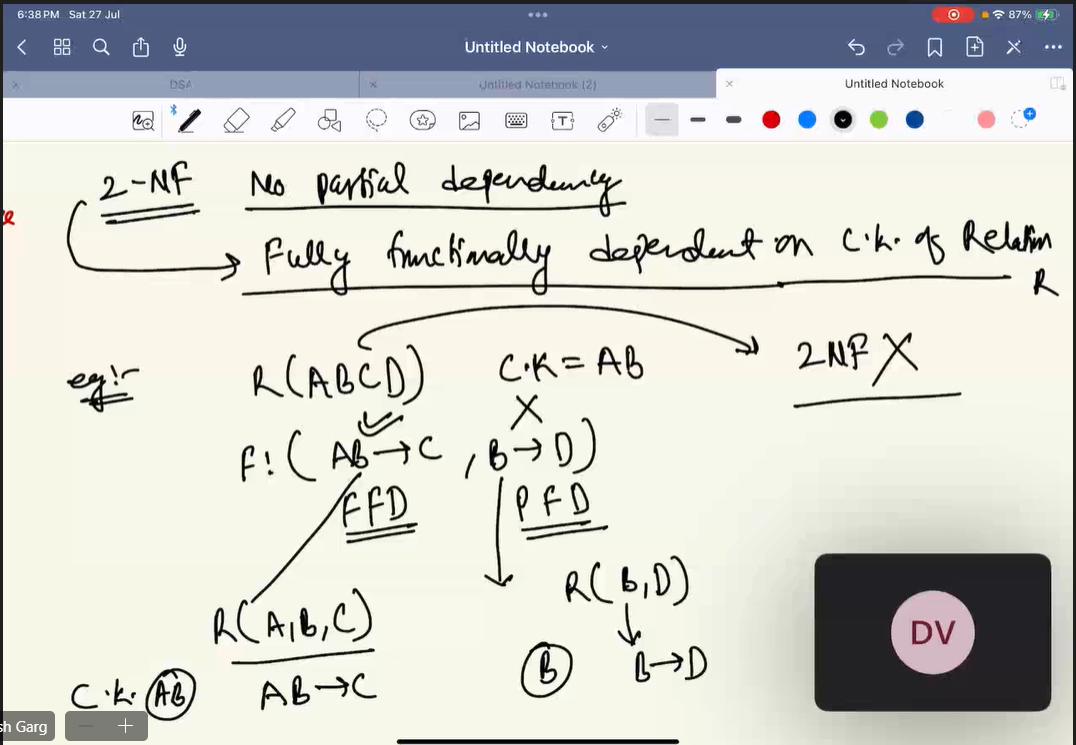 6:38 PM Sat 27 Jul
87%
Untitled Notebook
DSA
Untitled Notebook (2)
Untitled Notebook
T
2-NF No partial dependency
e
Fully functionally dependent on C.K. of Relation
R
eg:-
R(ABCD) C.K = AB 2NF X
X
F: (AB→C, B→D)
FFD PFD
R(A,B,C) R(B,D)
C.K. AB AB→C B B→D
DV
sh Garg